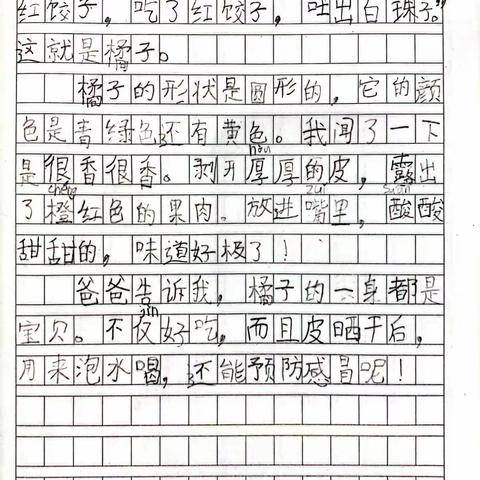 红饺子，吃了红饺子，吐出白珠子。”
这就是橘子。
橘子的形状是圆形的，它的颜
色是青绿色还有黄色。我闻了一下
hòu
是很香很香。剥开厚厚的皮，露出
chéng zuǐ suān
了橙红色的果肉。放进嘴里，酸酸
甜甜的，味道好极了！
爸爸告诉我，橘子的一身都是
jǐn
宝贝。不仅好吃，而且皮晒干后，
用来泡水喝，还能预防感冒呢！